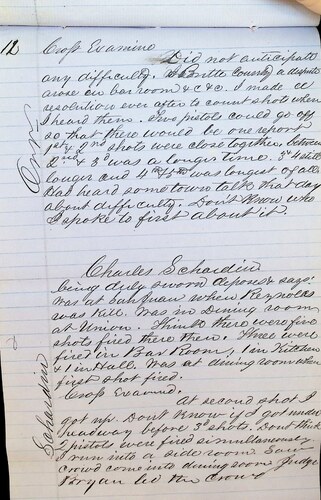 12
Cross Examine
Did not anticipate
any difficulty. A Butte County a dispute
arose in bar room &c &c. I made a
resolution ever after to count shots when
I heard them. Two pistols could go off
so that there would be one report
1st & 2nd shots were close together, between
2nd & 3d was a longer time. 3d & 4th still
longer and 4th & 5th was longest of all.
Had heard some town talk that day
about difficulty. Don't Know who
I spoke to first about it.
Orr
Charles Schardin
being duly sworn deposes & says:
Was at San Juan when Reynolds
was Kill. Was in Dining room
at Union. Think there were five
shots fired there then. Three were
fired in Bar Room, 1 in Kitchen
& 1 in Hall. Was at dining room when
first shot fired.
Cross Examined.
At second shot I
got up. Dont Know if I got much
headway before 3d shots. Dont think
2 pistols were fired simultaneously
I run into a side room. Saw
crowd come into dining room Judge
Bryan led the Crowd
Schardin